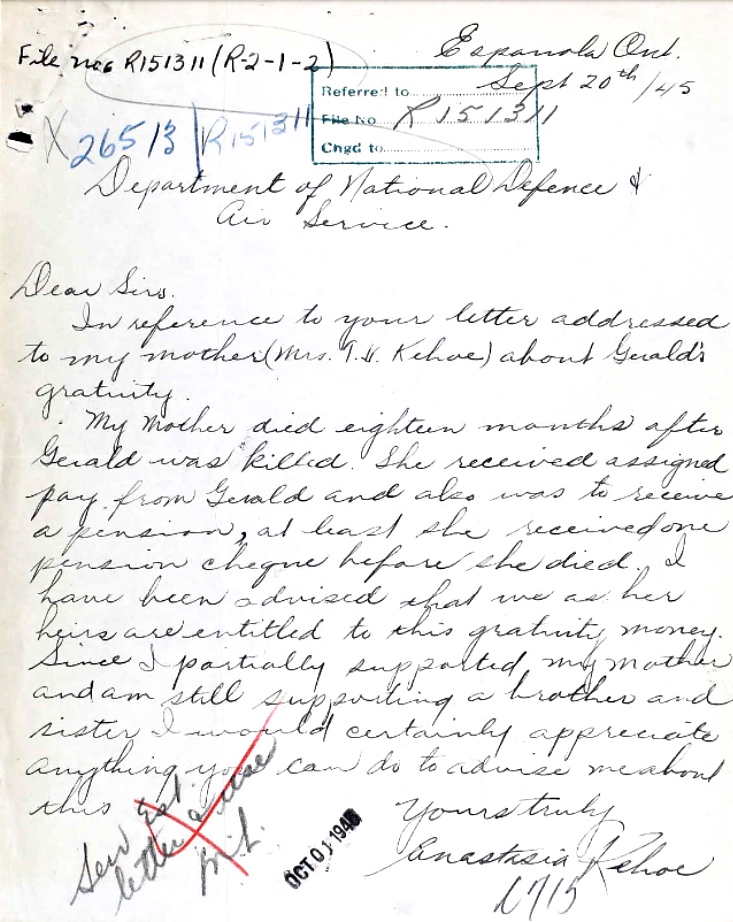 Espanola Ont.
File no. R151311 (R-2-1-2)
Sept 20th/45
Referred to
File No. R 151311
Chgd to
X 26513 | R151311
Department of National Defence &
Air Service.
Dear Sirs.
In reference to your letter addressed
to my mother (Mrs. T. Kehoe) about Gerald's
gratuity.
My Mother died eighteen months after
Gerald was killed. She received assigned
pay from Gerald and also was to receive
a pension, at least she received one
pension cheque before she died. I
have been advised that we as her
heirs are entitled to this gratuity money.
Since I partially supported my mother
and am still supporting a brother and
sister I would certainly appreciate
anything you can do to advise me about
this
Yours truly
Anastasia Kehoe
letter
OCT. 01 194